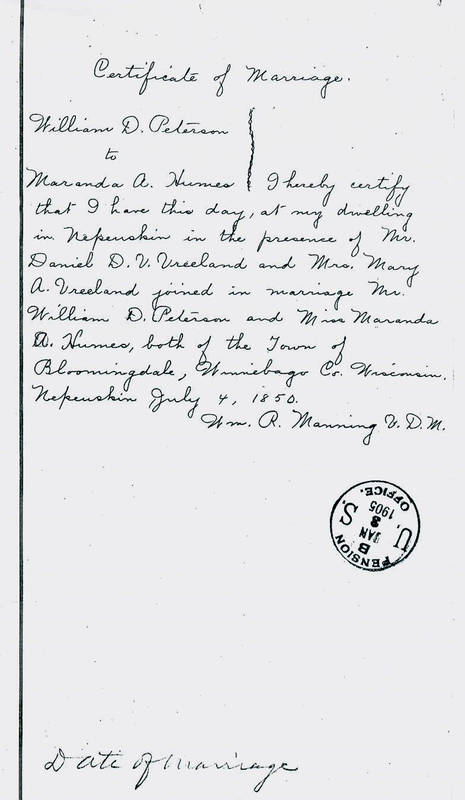 Certificate of Marriage.
William D. Peterson
to
Maranda A. Humes I hereby certify
that I have this day, at my dwelling
in Nepeuskin in the presence of Mr.
Daniel D. V. Vreeland and Mrs. Mary
A. Vreeland joined in marriage Mr.
William D. Peterson and Miss Maranda
A. Humes, both of the Town of
Bloomingdale, Winnebago Co. Wisconsin.
Nepeuskin July 4, 1850.
Wm. R. Manning V. D. M.
PENSION OFFICE.
U. S.
B
JAN
3
1905
Date of Marriage